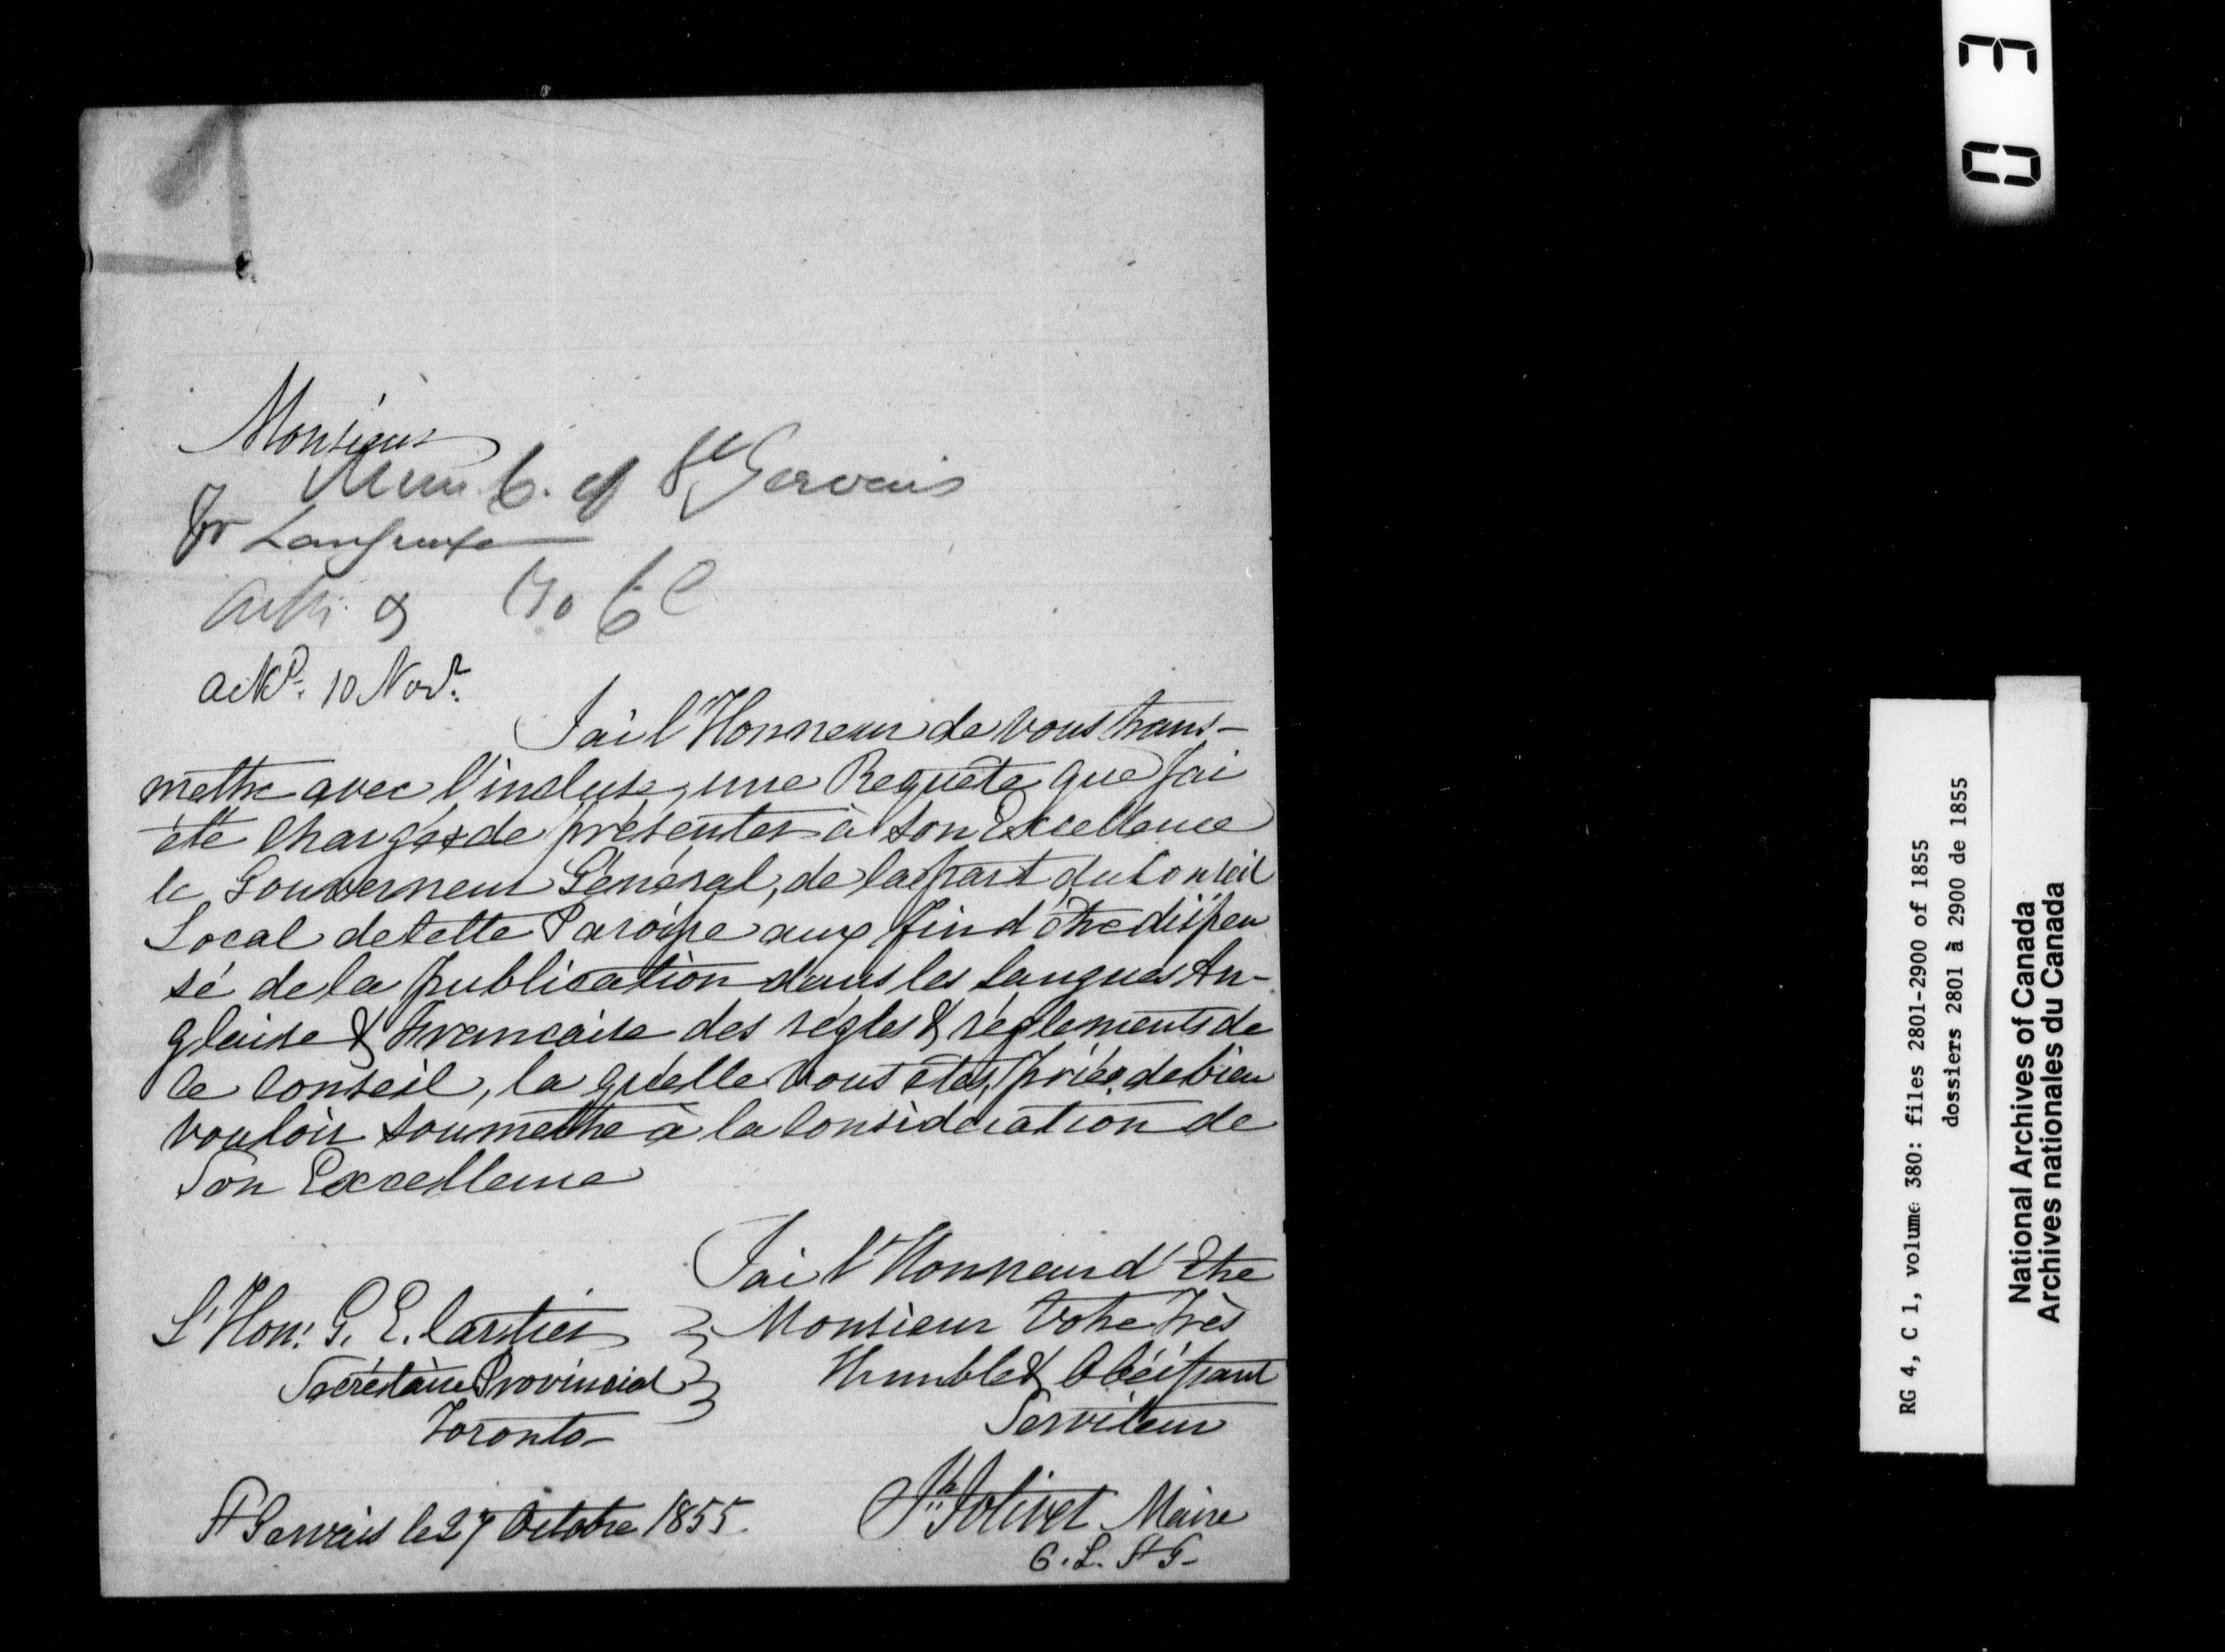 Monsieur
Mun. C. of St Gervais
fr Language
ackd. 10 Novr.
J'ai l'Honneur de vous trans-
mettre avec l'incluse, une Requête que j'ai
été chargé de présenter à Son Excellence
le Gouverneur Général, de la part du Conseil
Local de cette Paroisse aux fin d'être dispen
sé de la publication dans les langues An-
glaise & Francaise des règles & règlements de
ce Conseil, la quelle vous êtes prié de bien
vouloir soumettre à la Considération de
Son Excellence
J'ai l'Honneur d'Etre
Monsieur Votre Très
Humble & Obéissant
Serviteur
L'Hon: G. E. Cartier
Secrétaire Provincial
Toronto
St Gervais le 27 Octobre 1855.
Jolivet Maire
C. L. St G-
03
RG 4, C 1, volume 380: files 2801-2900 of 1855
dossiers 2801 à 2900 de 1855
National Archives of Canada
Archives nationales du Canada